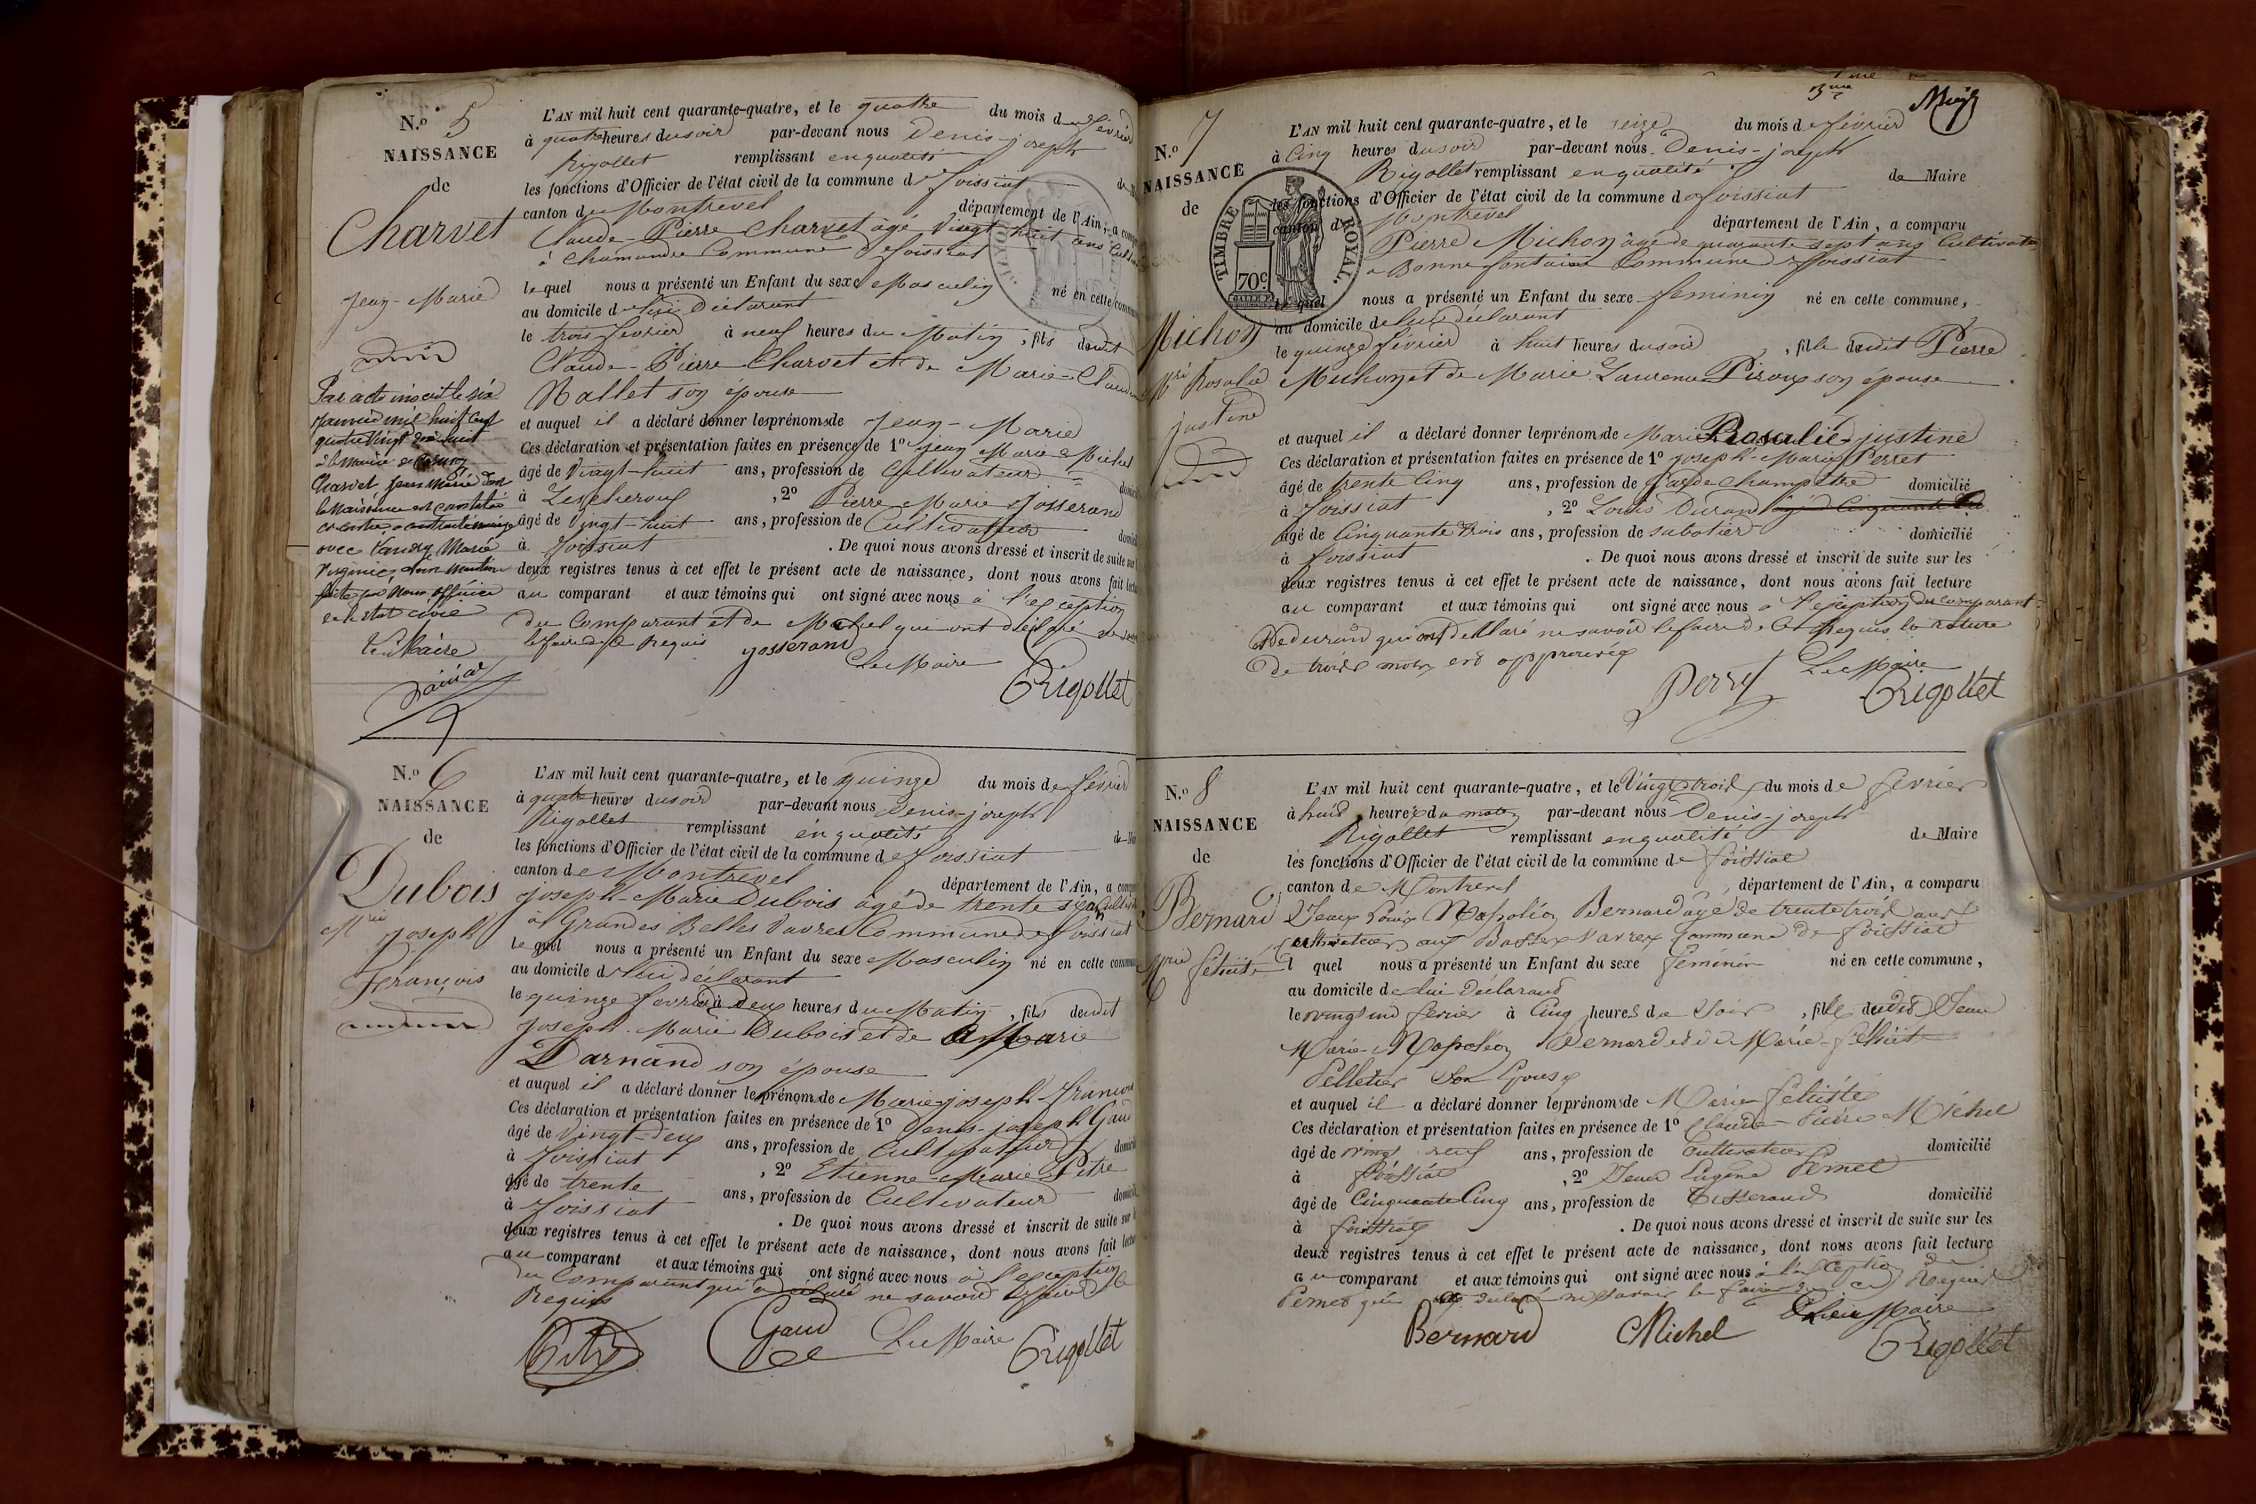 N.º 5
NAISSANCE
de
Charvet
Jean-Marie
L'AN mil huit cent quarante-quatre, et le quatre du mois de février
à quatre heures du soir par-devant nous Denis-joseph
Rigollet remplissant en qualité
les fonctions d'Officier de l'état civil de la commune de foissiat
canton de Montrevel département de l'Ain, a
Claude-Pierre Charvet âgé Vingt huit ans
à Chamandre Commune de foissiat
le quel nous a présenté un Enfant du sexe Masculin né en cette
au domicile de lui Déclarant
le trois février à neuf heures du Matin, fils dudit
Claude-Pierre Charvet et de Marie-
Nallet son épouse
et auquel il a déclaré donner les prénoms de Jean-Marie
Ces déclaration et présentation faites en présence de 1º jean Marie Michel
âgé de Vingt-huit ans, profession de Cultivateur
à Lescheroux, 2º Pierre Marie Josserand
âgé de Vingt-huit ans, profession de Cultivateur
à foissiat. De quoi nous avons dressé et inscrit de suite sur
deux registres tenus à cet effet le présent acte de naissance, dont nous avons fait
au comparant et aux témoins qui ont signé avec nous à l'exception
du Comparant et de Michel qui ont déclaré
le faire de ce Requis
josserand Le Maire Rigollet
Par acte inscrit le six
janvier mil huit cent
quatre vingt
à la mairie de
Charvet Jean Marie dont
la naissance est constatée
ci contre a contracté mariage
avec Vandry Marie
Virginie, dont mention
faite par Nous officier
de l'état civil
Le Maire
N.º 6
NAISSANCE
de
Dubois
Mrie joseph
François
L'AN mil huit cent quarante-quatre, et le quinze du mois de février
à quatre heures du soir par-devant nous Denis-joseph
Rigollet remplissant en qualité
les fonctions d'Officier de l'état civil de la commune de foissiat
canton de Montrevel département de l'Ain, a
joseph-Marie Dubois âgé de trente
à Grandes Belles Vavres Commune de foissiat
le quel nous a présenté un Enfant du sexe Masculin né en cette
au domicile de lui déclarant
le quinze février à deux heures du Matin, fils dudit
joseph Marie Dubois et de Marie
Darnand son épouse
et auquel il a déclaré donner les prénoms de Marie joseph-françois
Ces déclaration et présentation faites en présence de 1º Denis-joseph Gaud
âgé de Vingt-deux ans, profession de Cultivateur
à foissiat, 2º Etienne-Marie Pitre
âgé de trente ans, profession de Cultivateur
à foissiat. De quoi nous avons dressé et inscrit de suite sur
deux registres tenus à cet effet le présent acte de naissance, dont nous avons fait
au comparant et aux témoins qui ont signé avec nous à l'exception
du Comparant qui a déclaré ne savoir le faire de ce
Requis
Pitre Gaud Le Maire Rigollet
N.º 7
NAISSANCE
de
Michon
Mrie Rosalie
justine
TIMBRE ROYAL.
70c
L'AN mil huit cent quarante-quatre, et le seize du mois de février
à Cinq heures du soir par-devant nous Denis-joseph
Rigollet remplissant en qualité de Maire
les fonctions d'Officier de l'état civil de la commune de foissiat
canton de Montrevel département de l'Ain, a comparu
Pierre Michon âgé de quarante sept ans Cultivateur
à Bonnefontaine Commune de foissiat
le quel nous a présenté un Enfant du sexe feminin né en cette commune,
au domicile de lui déclarant
le quinze février à huit heures du soir, fille dudit Pierre
Michon et de Marie Laurence Piroux son épouse
et auquel il a déclaré donner les prénoms de Marie Rosalie-justine
Ces déclaration et présentation faites en présence de 1º joseph-Marie Perret
âgé de trente Cinq ans, profession de garde Champêtre domicilié
à foissiat, 2º Louis Durand
âgé de Cinquante trois ans, profession de sabotier domicilié
à foissiat. De quoi nous avons dressé et inscrit de suite sur les
deux registres tenus à cet effet le présent acte de naissance, dont nous avons fait lecture
au comparant et aux témoins qui ont signé avec nous à l'exception du comparant
et de durand qui ont déclaré ne savoir le faire de ce Requis la rature
de trois mots est approuvée
Perret Le Maire Rigollet
N.º 8
NAISSANCE
de
Bernard
Mrie félicité
L'AN mil huit cent quarante-quatre, et le Vingt trois du mois de fevrier
à huit heures du matin par-devant nous Denis-joseph
Rigollet remplissant en qualité de Maire
les fonctions d'Officier de l'état civil de la commune de foissiat
canton de Montrevel département de l'Ain, a comparu
Jean Louis Napoléon Bernard âgé de trente trois ans
cultivateur aux Basses Vavres Commune de foissiat
l quel nous a présenté un Enfant du sexe féminin né en cette commune,
au domicile de lui déclarant
le vingt un fevrier à Cinq heures du Soir, fille dudit Jean
Marie-Napoléon Bernard et de Marie-félicité
Pelletier Son Epouse
et auquel il a déclaré donner les prénoms de Marie félicité
Ces déclaration et présentation faites en présence de 1º Claude-Pierre Michel
âgé de vingt neuf ans, profession de Cultivateur domicilié
à foissiat, 2º Jean Eugène Pernet
âgé de Cinquante Cinq ans, profession de Tisserand domicilié
à foissiat. De quoi nous avons dressé et inscrit de suite sur les
deux registres tenus à cet effet le présent acte de naissance, dont nous avons fait lecture
au comparant et aux témoins qui ont signé avec nous à l'exception de
Pernet qui a déclaré ne savoir le faire de ce Requis
Bernard Michel Le Maire Rigollet